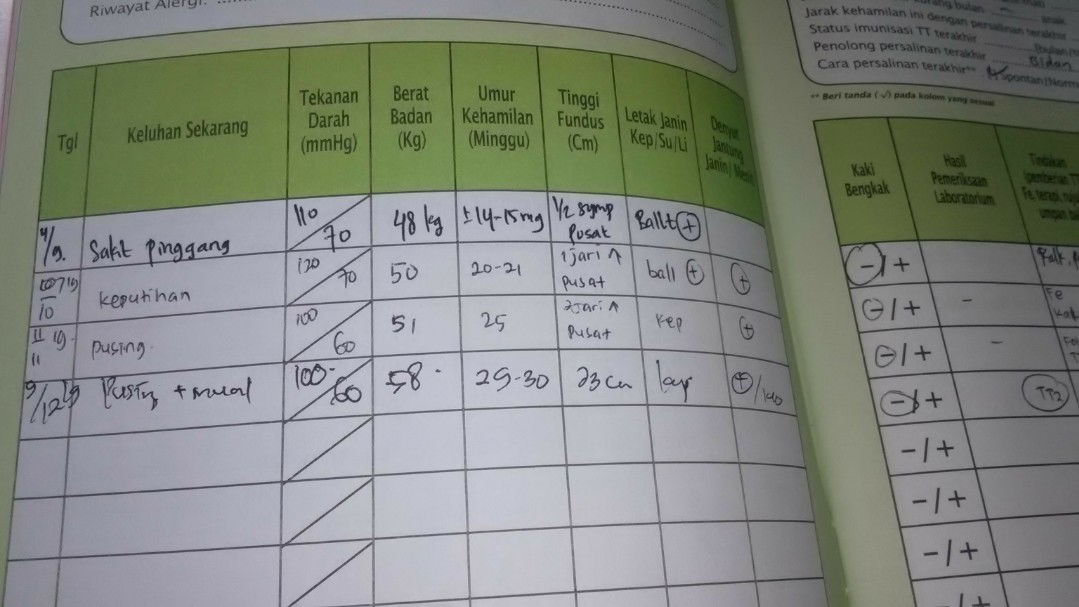 Riwayat Alergi:
Tgl
Keluhan Sekarang
Tekanan
Darah
(mmHg)
Berat
Badan
(Kg)
Umur
Kehamilan
(Minggu)
Tinggi
Fundus
(Cm)
Letak Janin
Kep/Su/Li
Denyut
Jantung
Janin/
Sakit Pinggang
110
70
48 kg
± 14-15 mg
1/2 symp
Pusat
Ballt (+)
10
keputihan
120
70
50
20-21
1 jari ↑
pusat
ball (+)
(+)
11
pusing
100
60
51
25
2 jari ↑
pusat
kep
(+)
Pusing + mual
100
60
58
29-30
23 cm
(+)/140
kurang bulan
anak
Jarak kehamilan ini dengan persalinan terakhir
Status imunisasi TT terakhir
Penolong persalinan terakhir
Bidan
Cara persalinan terakhir**
Spontan/Norm
** Beri tanda (√) pada kolom yang sesuai
Kaki
Bengkak
Hasil
Pemeriksaan
Laboratorium
Tindakan
(pemberian TT
Fe, terapi,
umpan
- / +
- / +
-
Fe
- / +
-
- / +
TT2
- / +
- / +
- / +